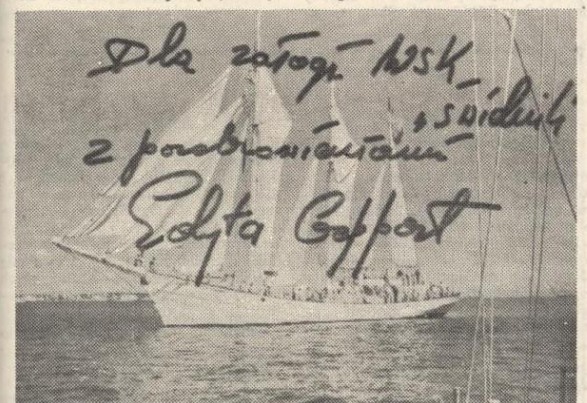 Dla załogi WSK
„Świdnik"
z pozdrowieniami
Edyta Geppert